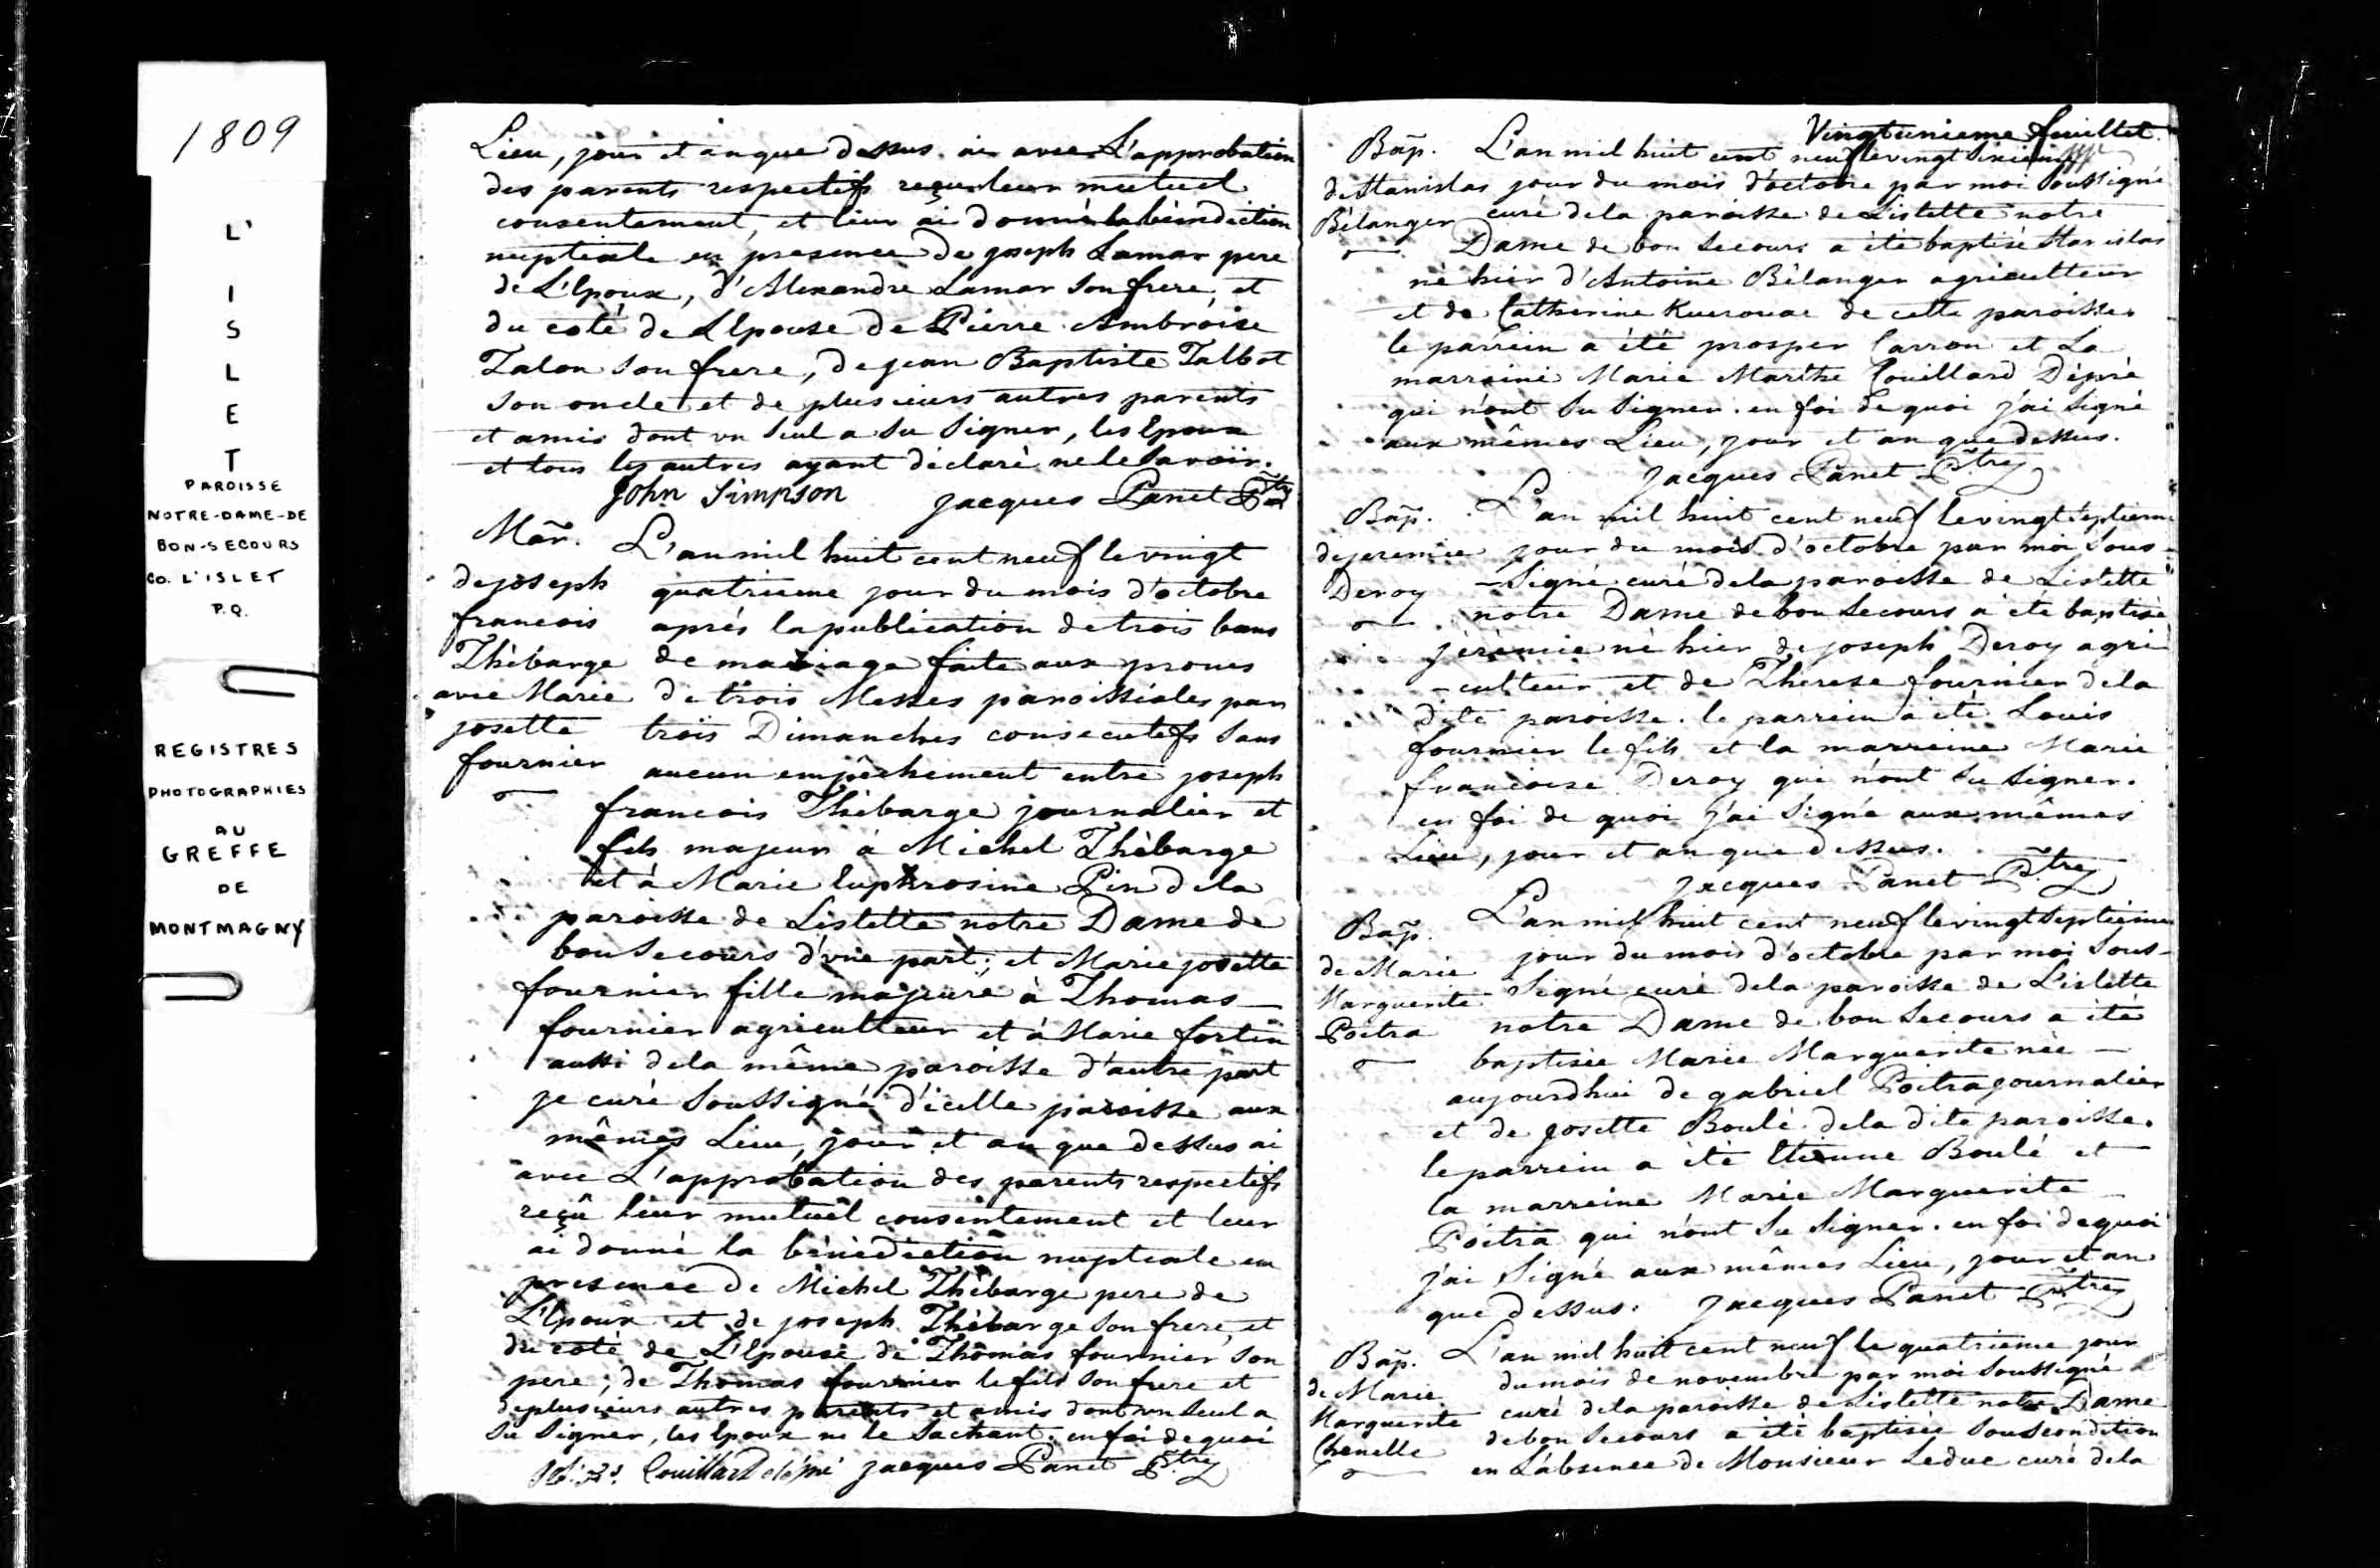 1809
L'
I
S
L
E
T
PAROISSE
NOTRE-DAME-DE
BON-SECOURS
CO. L'ISLET
P.Q.
REGISTRES
PHOTOGRAPHIES
AU
GREFFE
DE
MONTMAGNY
Lieu, jour et an que dessus ai avec L'approbation
des parents respectifs reçu leur mutuel
consentement, et leur ai donné la bénédiction
nuptiale en presence de joseph Lamar pere
de L'Epoux, d'Alexandre Lamar son frere, et
du coté de LEpouse de Pierre Ambroise
Talon son frere, de jean Baptiste Talbot
son oncle et de plusieurs autres parents
et amis dont un seul a su signer, les Epoux
et tous les autres ayant déclaré ne le savoir.
John Simpson jacques Panet Ptre
Mar. L'an mil huit cent neuf le vingt
de joseph quatrieme jour du mois d'octobre
francois aprés la publication de trois bans
Thèbarge de mariage faite aux prones
avec Marie de trois Messes paroissiales par
josette trois Dimanches consecutifs sans
fournier aucun empêchement entre joseph
francois Thèbarge journalier et
fils majeur à Michel Thèbarge
et à Marie Euphrosine Pin dela
paroisse de Lislette notre Dame de
bon secours d'une part; et Marie josette
fournier fille majeure à Thomas
fournier agriculteur et à Marie fortin
aussi dela même paroisse d'autre part
je curé soussigné d'icelle paroisse aux
mêmes Lieu, jour et an que dessus ai
avec L'approbation des parents respectifs
reçû leur mutuel consentement et leur
ai donné la bénédiction nuptiale en
presence de Michel Thèbarge pere de
L'Epoux et de joseph Thèbarge son frere, et
du coté de L'Epouse de Thomas fournier son
pere; de Thomas fournier le fils son frere et
deplusieurs autres parents et amis dont un seul a
su signer, les Epoux ne le sachant. en foi de quoi
Couillard dépré jacques Panet Ptre
Vingtunieme feuillet.
Bap. L'an mil huit cent neuf le vingt sixieme
de Stanislas jour du mois d'octobre par moi soussigné
Bèlanger curé dela paroisse de Lislette notre
Dame de bon secours a été baptisé Stanislas
né hier d'Antoine Bèlanger agriculteur
et de Catherine Kuerouac de cette paroisse.
le parrein a été prosper Carron et La
marraine Marie Marthe Couillard Dépré
qui n'ont su signer. en foi de quoi j'ai signé
aux mêmes Lieu, jour et an que dessus.
jacques Panet Ptre
Bap. L'an mil huit cent neuf le vingt septieme
de jeremie jour du mois d'octobre par moi sous-
Deroy -signé curé dela paroisse de Lislette
notre Dame de bon secours a été baptisé
jérémie né hier de joseph Deroy agri
-culteur et de Therese fournier dela
dite paroisse. le parrein a été Louis
fournier le fils et la marreine Marie
francoise Deroy qui n'ont su signer.
en foi de quoi j'ai signé aux mêmes
Lieu, jour et an que dessus.
jacques Panet Ptre
Bap. L'an mil huit cent neuf le vingt septieme
de Marie jour du mois d'octobre par moi sous-
Marguerite signé curé dela paroisse de Lislette
Poitra notre Dame de bon secours a été
baptisée Marie Marguerite née
aujourdhui de gabriel Poitra journalier
et de josette Boulé dela dite paroisse.
le parrein a été Etienne Boulé et
la marreine Marie Marguerite
Poitra qui n'ont su signer. en foi de quoi
j'ai signé aux mêmes Lieu, jour et an
que dessus. jacques Panet Ptre
Bap. L'an mil huit cent neuf le quatrieme jour
de Marie du mois de novembre par moi soussigné
Marguerite curé dela paroisse de Lislette notre Dame
Chenelle de bon secours a été baptisée sous condition
en L'absence de Monsieur Leduc curé dela